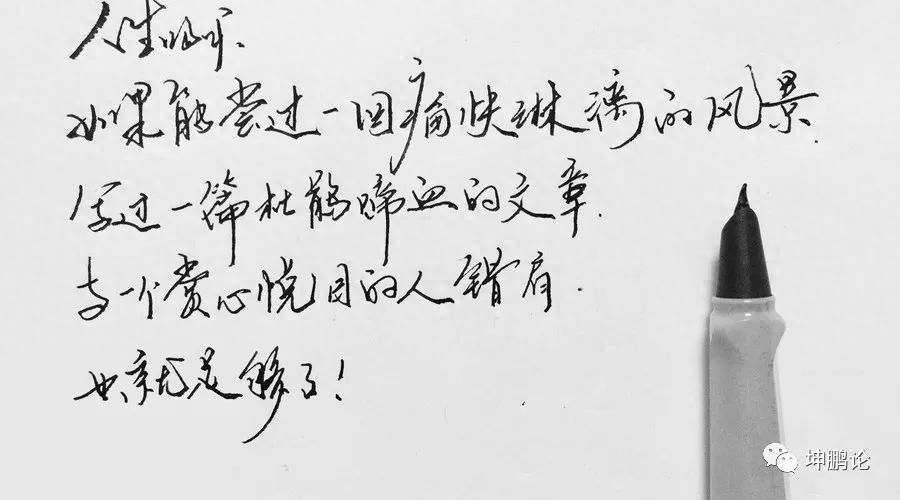 人生啊.
如果能尝过一回痛快淋漓的风景.
写过一篇杜鹃啼血的文章.
与一个赏心悦目的人错肩.
也就足够了!
坤鹏论